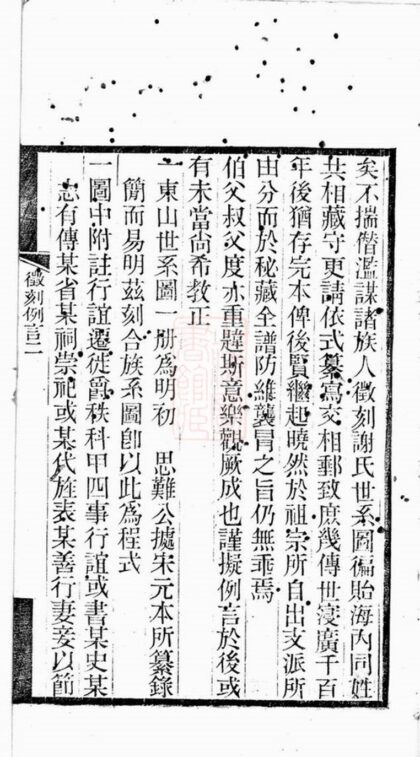 矣不揣僭濫謀諸族人徵刻謝氏世系圖徧貽海內同姓
共相藏守更請依式纂寫交相郵致庶幾傳世寖廣千百
年後猶存完本俾後賢繼起曉然於祖宗所自出支派所
由分而於秘藏全譜防維襲冒之旨仍無乖焉
伯父叔父度亦重韙斯意樂觀厥成也謹擬例言於後或
有未當尚希教正
一東山世系圖一册為明初 思難公據宋元本所纂錄
簡而易明茲刻合族系圖卽以此為程式
一圖中附註行誼遷徙爵秩科甲四事行誼或書某史某
志有傳某省某祠崇祀或某代旌表某善行妻妾以節
徵刻例言二